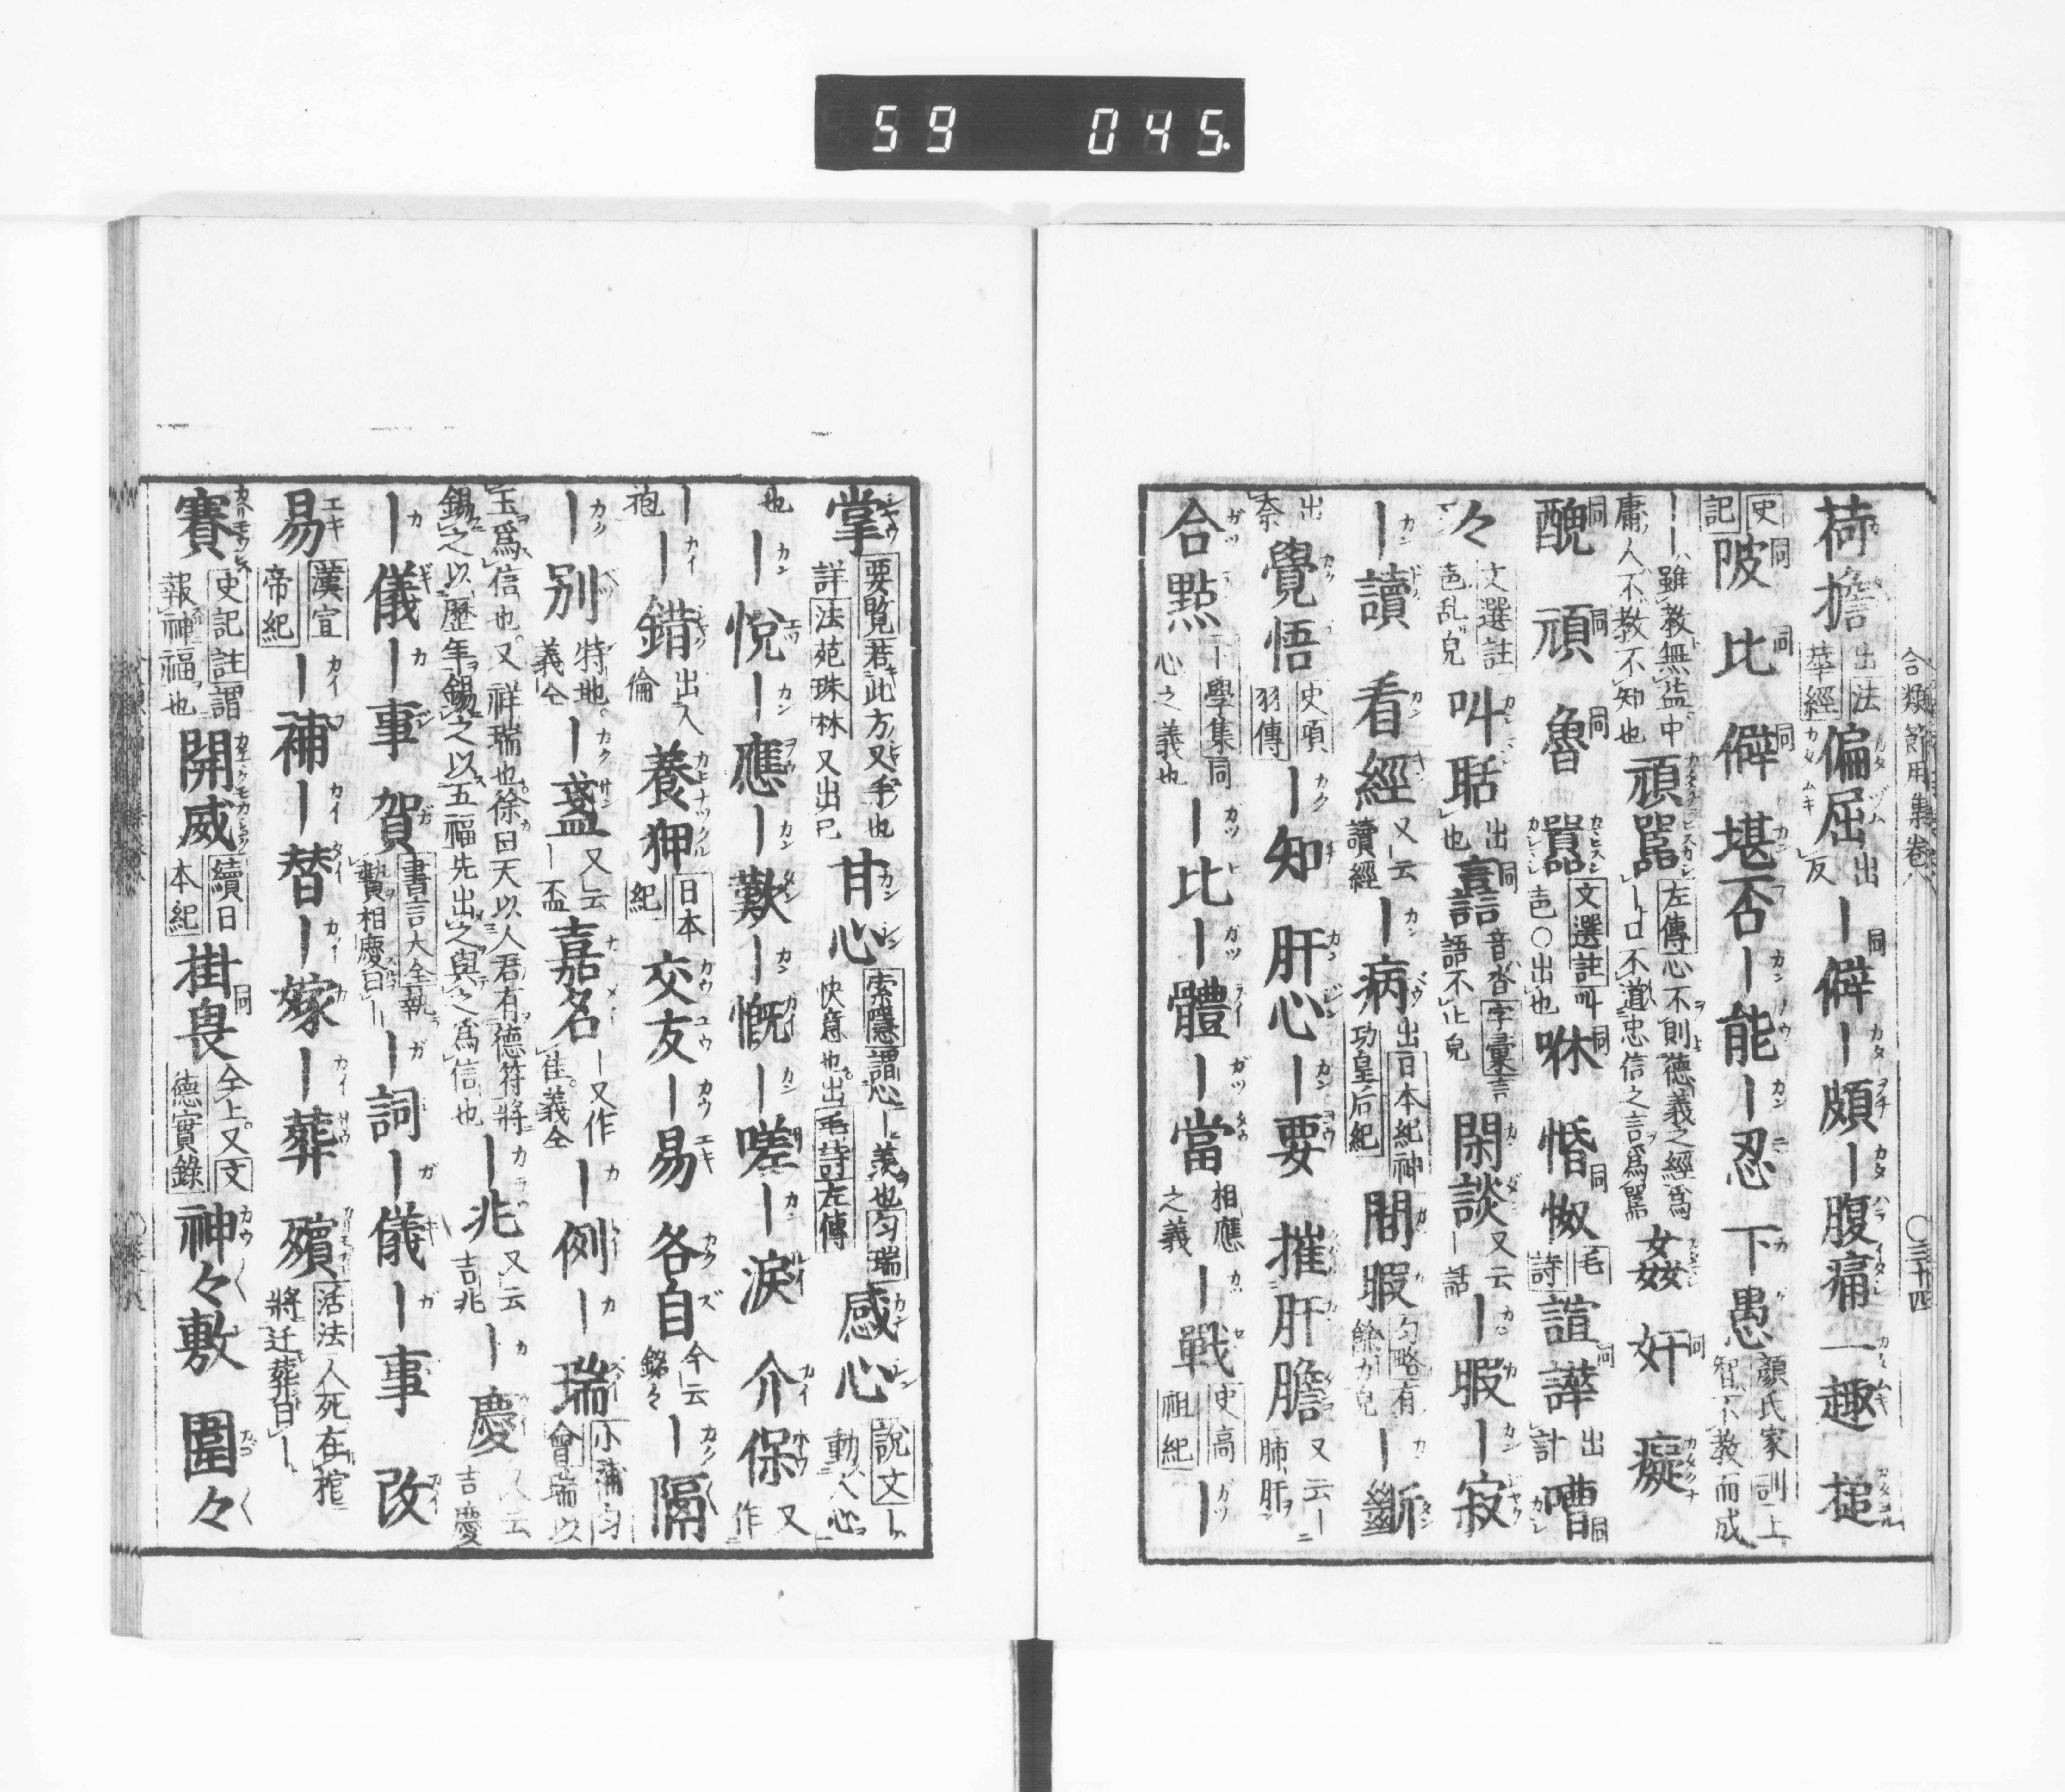 59 045.
合類節用集卷八 〇三十四
荷擔 出法華經 偏屈 出 ｜僻 ｜頗 ｜腹痛 一趣 搥
史記 陂 比 僻 堪否 ｜能 ｜忍 下愚 顏氏家訓上智不教而成
｜雖教無益中庸人不教不知也 頑嚚 左傳心不則德義之經爲｜口不道忠信之言爲嚚 姦 奸 癡
醜 頑 魯 囂 文選註叫㐌○出也 咻 惛怓 毛詩 諠譁 出 嘈
々 文選註㐌乱皃 叫聒 出也 譶 音沓字彙言語不止皃 閑談 又云｜話 ｜暇 ｜寂
｜讀 看經 又云讀經 ｜病 出日本紀神功皇后紀 間暇 匀略有餘力皃 ｜斷
出 覺悟 史項羽傳 ｜知 肝心 ｜要 摧肝膽 又云｜肺肝
合點 ｜學集同心之義也 ｜比 ｜體 ｜當 相應之義 ｜戰 史高祖紀 ｜
掌 要覧若此方叉手也詳法苑珠林又出已 甘心 索隱謂心｜羨也匀瑞快意也出毛詩左傳 感心 說文｜動人心
也 ｜悅 ｜應 ｜歎 ｜慨 ｜嗟 ｜淚 介保 又作
｜ ｜錯 出人倫 養狎 日本紀 交友 ｜易 各自 今云銘々 ｜隔
｜別 特地義仝 ｜盞 又云｜盃 嘉名 ｜又作佳義仝 ｜例 ｜瑞 小補匀會瑞以
玉爲信也又祥瑞也徐曰天以人君有德符將錫之以歷年錫之以五福先出之與之爲信也 ｜兆 又云吉兆 ｜慶 又云吉慶
｜儀 ｜事 賀 書言大全執贄相慶曰｜ ｜詞 ｜儀 ｜事 改
易 漢宣帝紀 ｜補 ｜替 ｜嫁 ｜葬 殯 活法人死在棺將迁葬曰｜
賽 史記註謂報神福也 開威 續日本紀 掛畏 仝上又文德實錄 神々敷 圍々